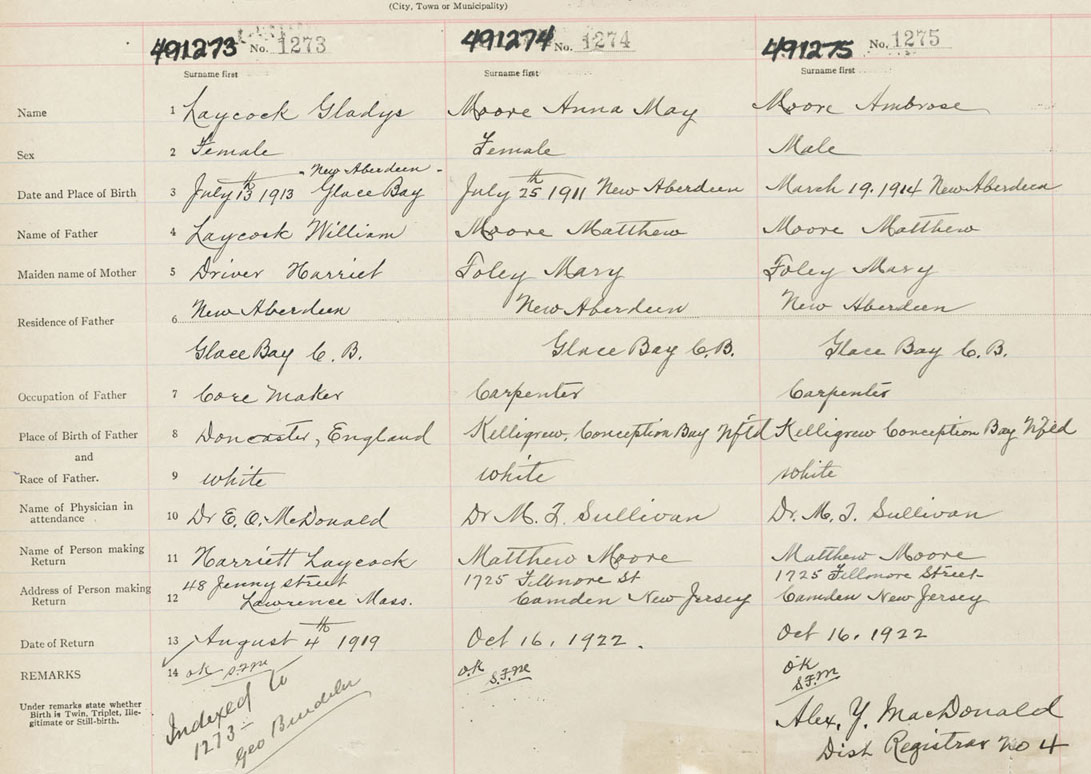 (City, Town or Municipality)
491273 No. 1273 491274 No. 1274 491275 No. 1275
Surname first Surname first Surname first
Name 1 Laycock Gladys Moore Anna May Moore Ambrose
Sex 2 Female Female Male
New Aberdeen
Date and Place of Birth 3 July 13th 1913 Glace Bay July 25th 1911 New Aberdeen March 19. 1914 New Aberdeen
Name of Father 4 Laycock William Moore Matthew Moore Matthew
Maiden name of Mother 5 Driver Harriet Foley Mary Foley Mary
Residence of Father 6 New Aberdeen New Aberdeen New Aberdeen
Glace Bay C.B. Glace Bay C.B. Glace Bay C.B.
Occupation of Father 7 Core Maker Carpenter Carpenter
Place of Birth of Father 8 Doncaster, England Kelligrew, Conception Bay Nfld Kelligrew Conception Bay Nfld
and
Race of Father. 9 white white white
Name of Physician in attendance 10 Dr E. O. McDonald Dr M. T. Sullivan Dr. M. T. Sullivan
Name of Person making Return 11 Harriett Laycock Matthew Moore Matthew Moore
Address of Person making Return 12 48 Jenny street 1725 Fillmore St 1725 Fillmore Street
Lawrence Mass. Camden New Jersey Camden New Jersey
Date of Return 13 August 4th 1919 Oct 16, 1922. Oct 16, 1922
REMARKS 14 ok S.F.M ok S.F.M ok S.F.M
Under remarks state whether
Birth is Twin, Triplet, Ille-
gitimate or Still-birth.
Indexed to
1273
Geo
Alex. Y. MacDonald
Dist Registrar No 4